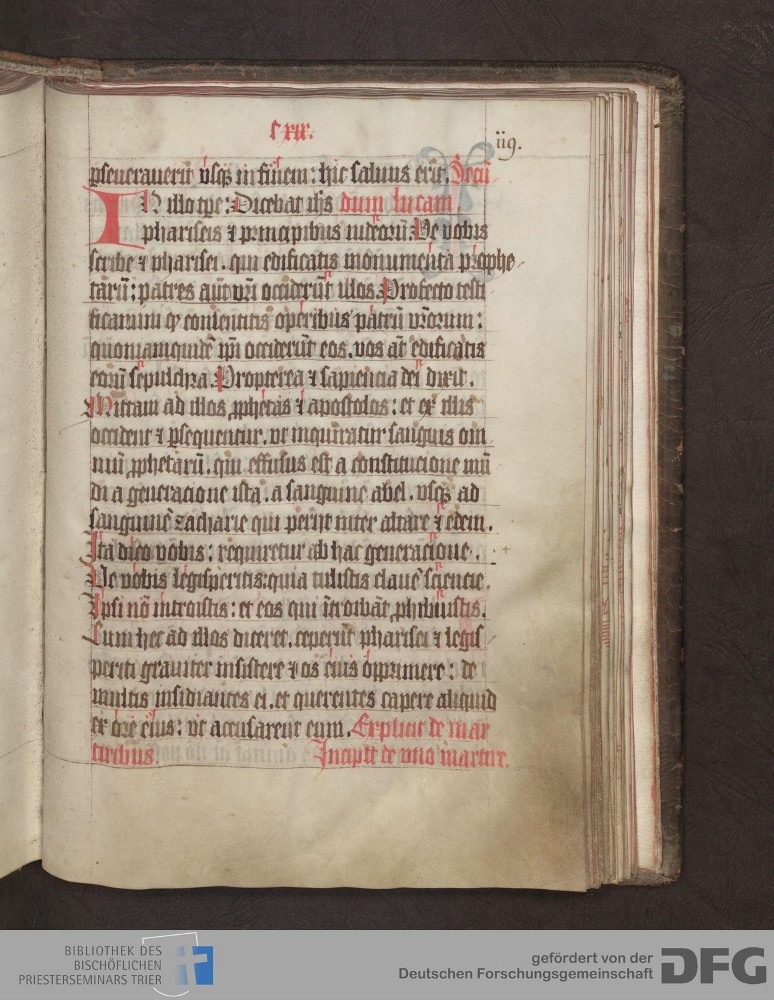 cxix.
119.
ꝑseuerauerit vsqꝫ in finem: hic saluus erit. Secū
IN illo tꝑe: Dicebat ih̄s dum lucam.
phariseis ⁊ principibus iudeorū. Ve vobis
scribe ⁊ pharisei. qui edificatis monumenta prophe
tarū: patres aūt vr̄i occiderūt illos. Profecto testi
ficamini ꝙ consentitis operibus patrū vr̄orum:
quoniamquidē ip̄i occiderūt eos. vos āt edificatis
eorū sepulchra. Propterea ⁊ sapiencia dei dixit.
Mittam ad illos ꝓphetas ⁊ apostolos: et ex illis
occident ⁊ ꝑsequentur. vt inquiratur sanguis om
niū ꝓphetarū. qui effusus est a constitucione mū
di a generacione ista. a sanguine abel. vsqꝫ ad
sanguinē zacharie qui perijt inter altare ⁊ edem.
Ita dico vobis: requiretur ab hac generacione.
Ve vobis legisperitis: quia tulistis clauē sciencie.
Ipsi nō introistis: et eos qui ītroibāt ꝓhibuistis.
Cum hec ad illos diceret. ceperūt pharisei ⁊ legis
periti grauiter insistere ⁊ os eius opprimere: de
multis insidiantes ei. et querentes capere aliquid
ex ore eius: vt accusarent eum. Explicit de mar
tiribus. Incipit de vno martire.
BIBLIOTHEK DES
BISCHÖFLICHEN
PRIESTERSEMINARS TRIER
gefördert von der
Deutschen Forschungsgemeinschaft
DFG